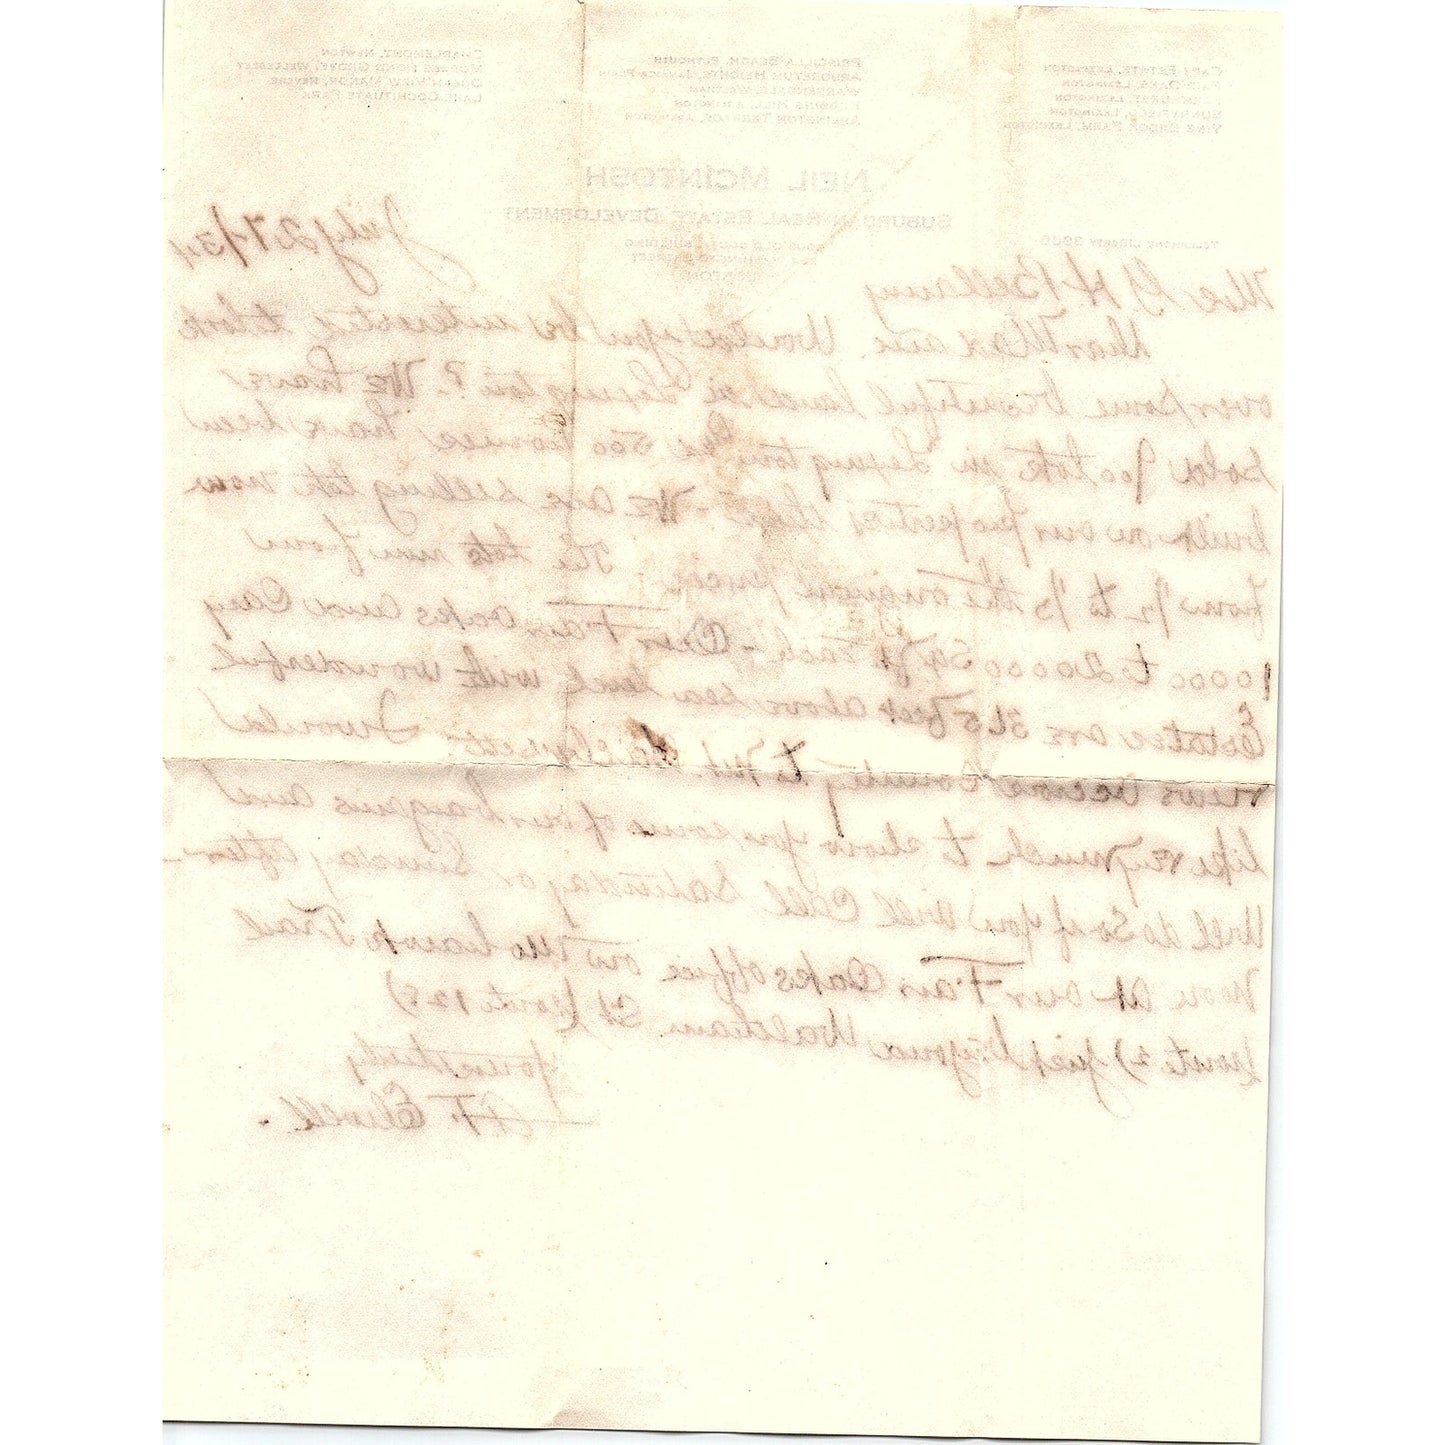 Cary Estate, Lexington
Fair Oaks, Lexington
Lexington
Sunnyfield, Lexington
Vine Brook Farm, Lexington
Priscilla Beach, Plymouth
Arboretum Heights, Jamaica Plain
Warrendale, Waltham
Robbins Hill, Arlington
Arlington Terrace, Arlington
Charlemont, Newton
Grove, Wellesley
Manor, Revere
Lake Cochituate Park
Neil McIntosh
Suburban Real Estate Development
Telephone Liberty
July 27/34
H Bellamy
Dear Madam Would you be interested to look
over some beautiful land in Lexington? We have
sold 900 lots in Lexington 500 homes have been
built on our properties there - We are selling lots now
from 1/2 to 1/3 the original price. The lots run from
10000 to 20000 Sq ft each - Our Fair Oaks and Cary
Estates are 365 feet above sea level with wonderful
views across Country to I would
like very much to show you some of our bargains and
Will do so if you will call Saturday or Sunday after-
noon at our Fair Oaks office on Mohawk Trail
route 2) just beyond Waltham St (route 128)
yours truly
Elwell